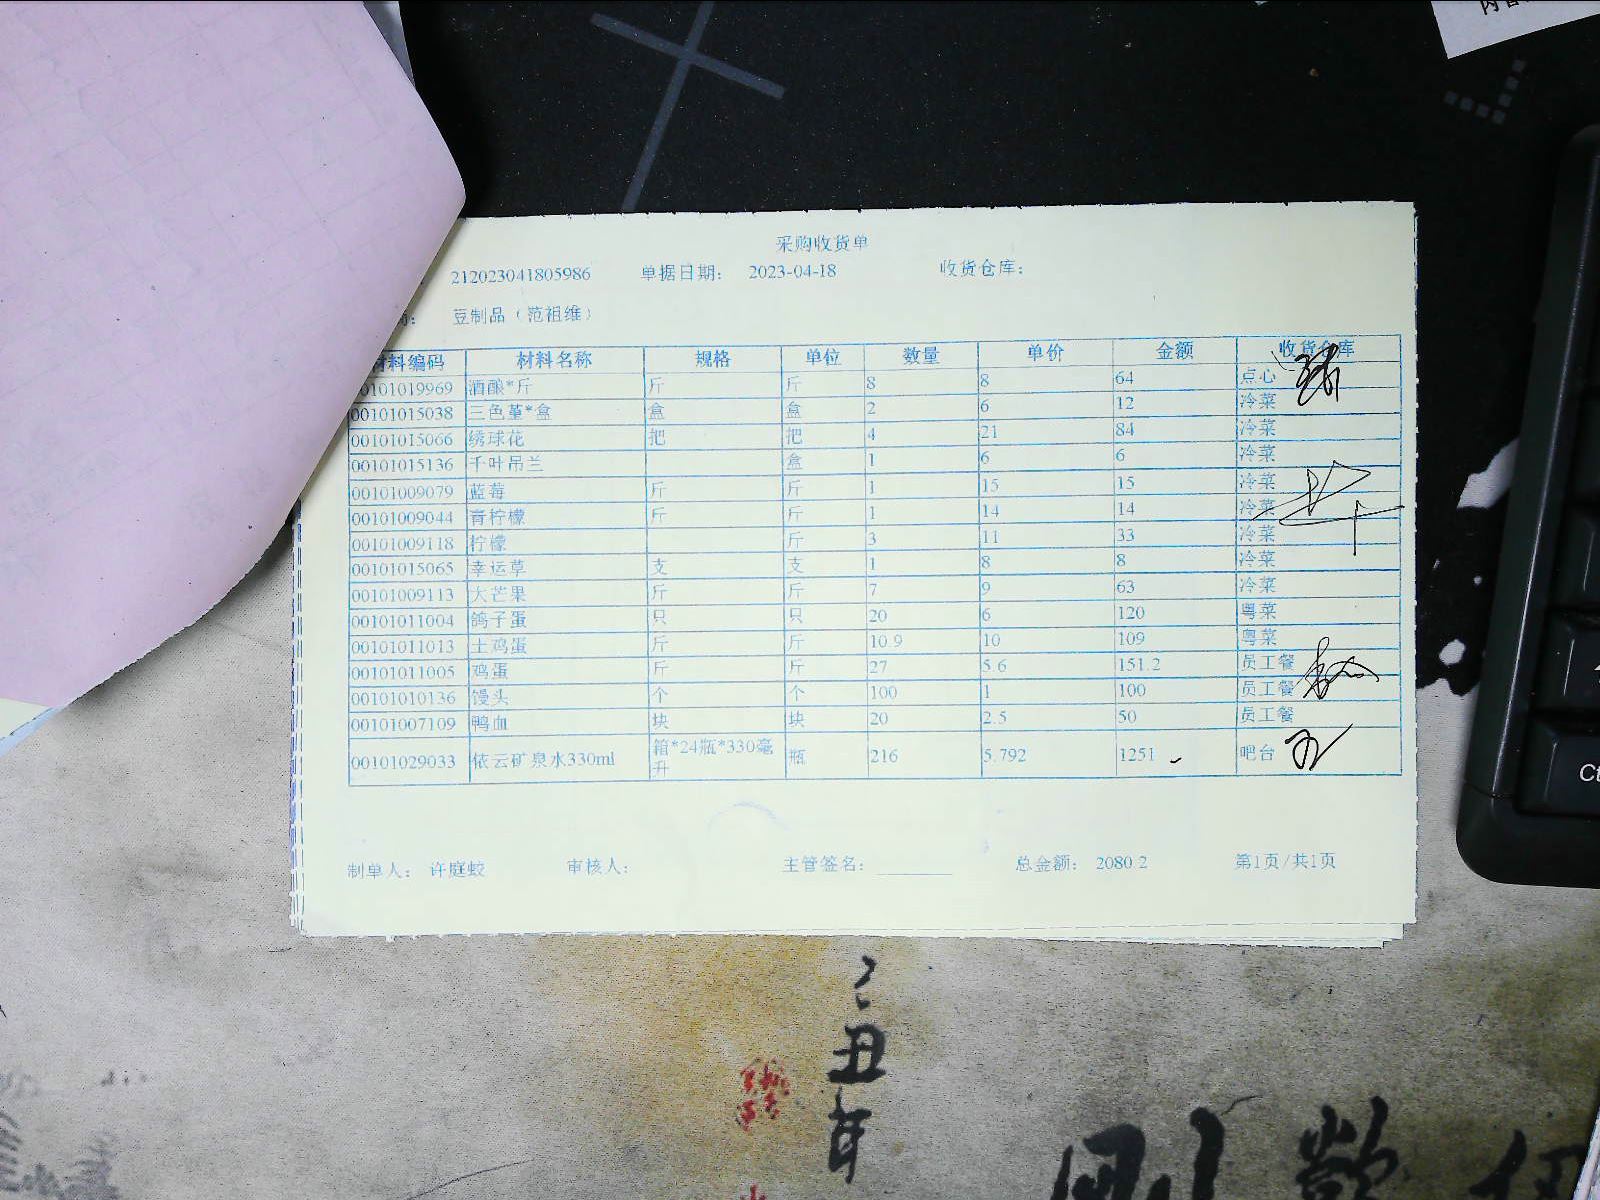 采购收货单
212023041805986 单据日期: 2023-04-18 收货仓库:
豆制品（范祖维）
材料编码 材料名称 规格 单位 数量 单价 金额 收货仓库
00101019969 酒酿*斤 斤 斤 8 8 64 点心
00101015038 三色堇*盒 盒 盒 2 6 12 冷菜
00101015066 绣球花 把 把 4 21 84 冷菜
00101015136 千叶吊兰 盒 1 6 6 冷菜
00101009079 蓝莓 斤 斤 1 15 15 冷菜
00101009044 青柠檬 斤 斤 1 14 14 冷菜
00101009118 柠檬 斤 3 11 33 冷菜
00101015065 幸运草 支 支 1 8 8 冷菜
00101009113 大芒果 斤 斤 7 9 63 冷菜
00101011004 鸽子蛋 只 只 20 6 120 粤菜
00101011013 土鸡蛋 斤 斤 10.9 10 109 粤菜
00101011005 鸡蛋 斤 斤 27 5.6 151.2 员工餐
00101010136 馒头 个 个 100 1 100 员工餐
00101007109 鸭血 块 块 20 2.5 50 员工餐
00101029033 依云矿泉水330ml 箱*24瓶*330毫升 瓶 216 5.792 1251 吧台
制单人: 许庭蛟 审核人: 主管签名: 总金额: 2080.2 第1页/共1页
Ct
丑
年